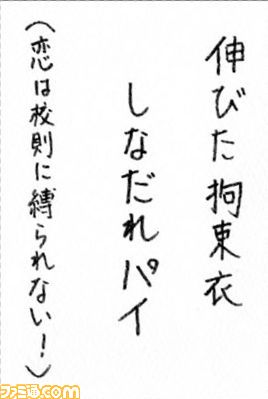 伸びた拘束衣
しなだれパイ
（恋は校則に縛られない！）
ファミ通.com